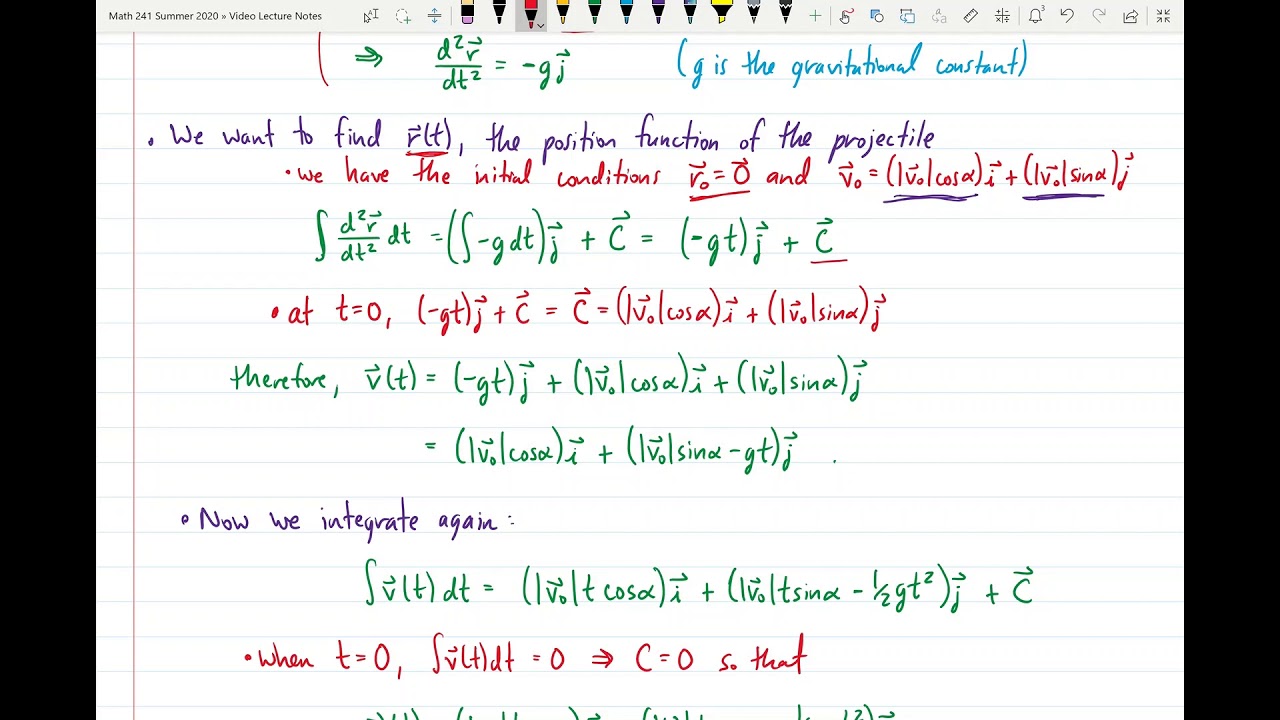 Math 241 Summer 2020 » Video Lecture Notes
⇒ d²r⃗/dt² = -gj⃗ (g is the gravitational constant)
• We want to find r⃗(t), the position function of the projectile
• we have the initial conditions r⃗₀ = 0⃗ and v⃗₀ = (|v⃗₀|cosα)i⃗ + (|v⃗₀|sinα)j⃗
∫ d²r⃗/dt² dt = (∫-g dt)j⃗ + C⃗ = (-gt)j⃗ + C⃗
• at t=0, (-gt)j⃗ + C⃗ = C⃗ = (|v⃗₀|cosα)i⃗ + (|v⃗₀|sinα)j⃗
therefore, v⃗(t) = (-gt)j⃗ + (|v⃗₀|cosα)i⃗ + (|v⃗₀|sinα)j⃗
= (|v⃗₀|cosα)i⃗ + (|v⃗₀|sinα - gt)j⃗ .
• Now we integrate again:
∫v⃗(t) dt = (|v⃗₀|t cosα)i⃗ + (|v⃗₀|t sinα - ½gt²)j⃗ + C⃗
• when t=0, ∫v⃗(t)dt = 0 ⇒ C=0 so that